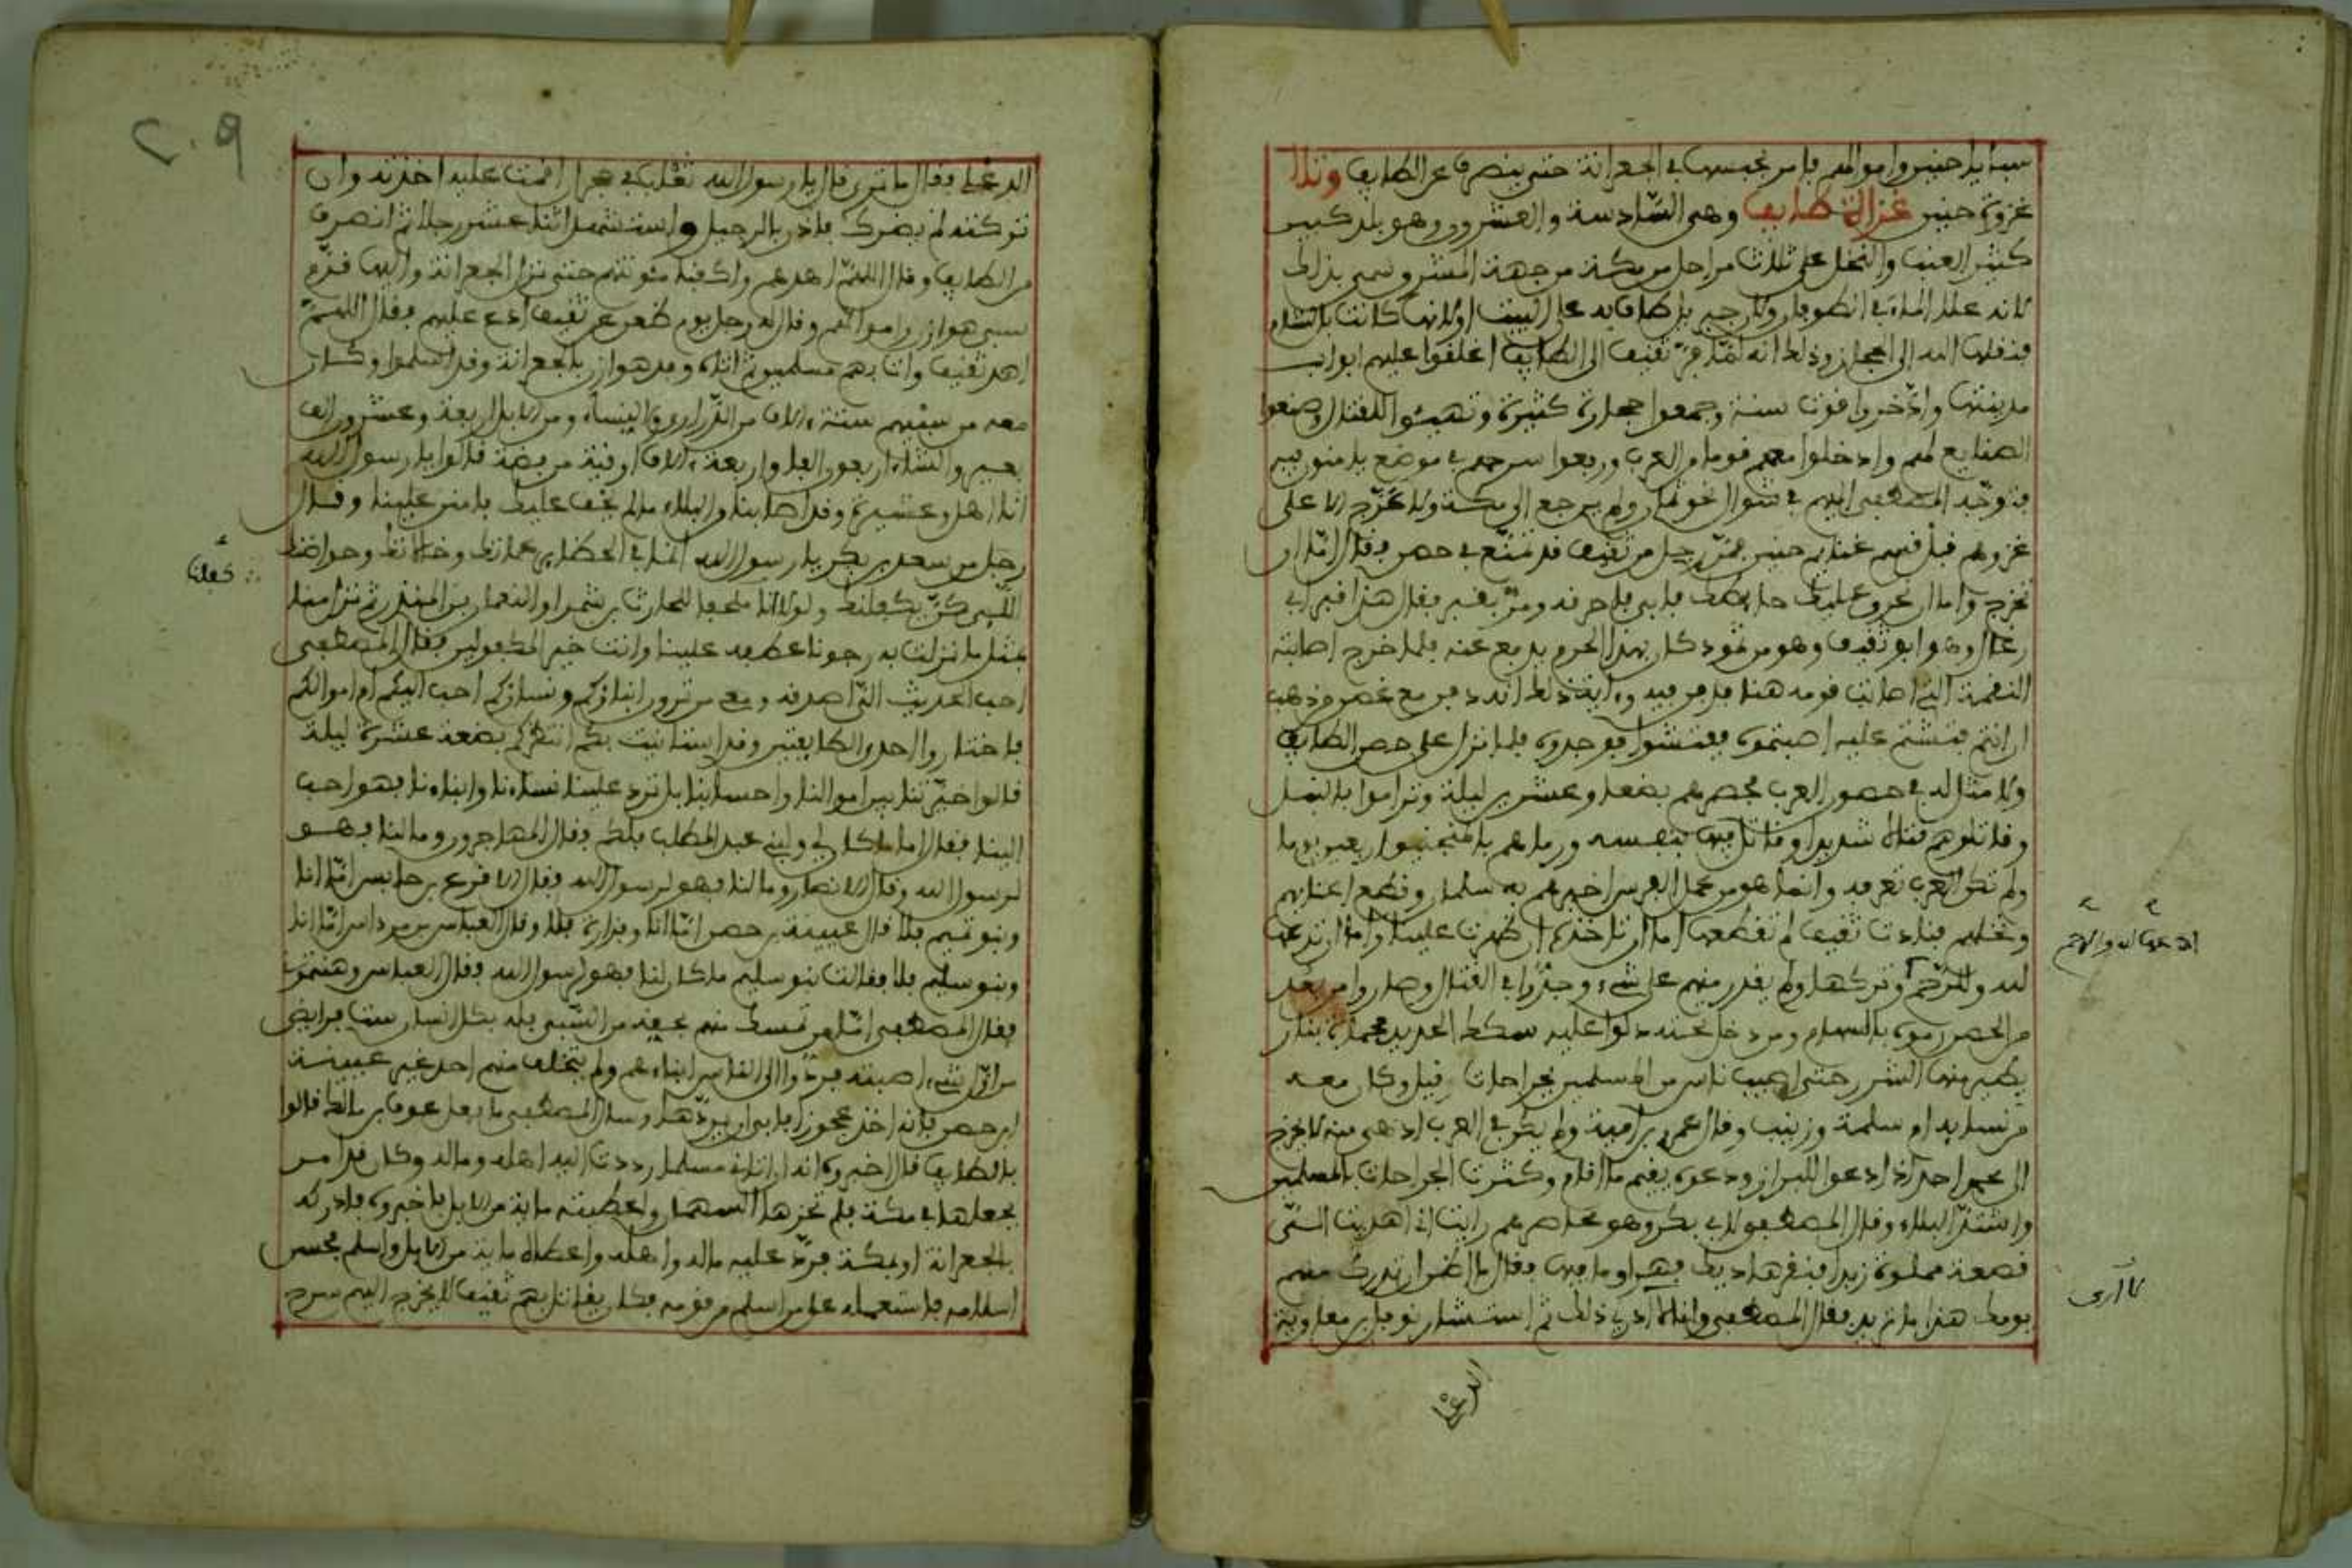 سبايا حنين واموالهم فامر بحبسها في الجعرانة حتى ينصرف عن الطايف وتلا
غزوة حنين غزاة الطايف وهي السّادسة والعشرون وهو بلد كبير
كثير العنب والنخل على ثلاث مراحل من مكة من جهة المشرق سمي بذلك
لانه علا الماء في الطوفان ولان جبريل طاف به على البيت اولانها كانت بالشام
فنقلها الله الى الحجاز وذلك انه لمّا فرّ ثقيف الى الطايف اغلقوا عليهم ابواب
مدينتها وادّخروا قوت سنة وجمعوا حجارة كثيرة وتهيئوا للقتال وصنعوا
الصنايع لهم وادخلوا معهم قوما من العرب ورفعوا سرحهم في موضع يامنون فيه
فتوجّه المصطفى اليهم في شوال ولم يرجع الى مكة ولا عرّج الا على
غزوهم قبل قسم غنايم حنين فمرّ برجل من ثقيف قد تمنّع في حصن فقال امّا ان
تخرج واما ان نحرق عليك حايطك فابى فاحرقه ومرّ بقبر فقال هذا قبر ابي
رغال وهو ابو ثقيف وهو من ثمود كان بهذا الحرم يدفع عنه فلما خرج اصابته
النقمة التي اصابت قومه هنا فدفن فيه وءاية ذلك انه دفن معه غصن من ذهب
ان انتم نبشتم عليه اصبتموه ففتشوا فوجدوه فلما نزل على حصن الطايف
ولا مثل له في حصون العرب فحصرهم بضعا وعشرين ليلة وتراموا بالنبل
وقاتلوهم قتالا شديدا وقاتل فيها بنفسه ورماهم بالمنجنيق
ولم تكن العرب تعرفه وانما هو من عمل الفرس اخبرهم به سلمان وقطع اعنابهم
ونخلهم فنادت ثقيف لم تقطعها اما ان تاخذها ان ظهرت علينا واما ان تدعها
لله وللرّحم وتركها ولم يقدر منهم على شيء وجدّوا في القتال وصاروا من بعد
من الحصن رموه بالسهام ومن دخل تحته دلوا عليه سكك الحديد محماة بنار
يطير منها الشرر حتى اصيب ناس من المسلمين بجراحات قيل وكان معه
من نسايه ام سلمة وزينب وقال عمرو بن امية ولم يكن في العرب ادهى منه لا يخرج
الى محمد احد اذا دعوا للبراز ودعوه يقيم ما اقام وكثرت الجراحات بالمسلمين
واشتدّ البلاء وقال المصطفى لابي بكر وهو محاصرهم رايت اني اهديت الى
قصعة مملوة زبدا فنقرها ديك فهراو ما فيها فقال ما اظن ان تدرك منهم
يومك هذا ما تريد فقال المصطفى وانا لا ارى ذلك ثم استشار نوفل بن معاوية
ادعها لله والرحم
لا أرى
الدغلي
٢٠٩
الدغلي فقال ما ترى قال يا رسول الله ثعلب في جحر ان اقمت عليه اخذته وان
تركته لم يضرك فاذن بالرحيل واستشهد اثنا عشر رجلا ثم انصرف
من الطايف وقال اللهمّ اهدهم واكفنا مئونتهم حتى نزل الجعرانة واليها قدم
سبي هوازن واموالهم وقال له رجل يوم ظعن عن ثقيف ادع عليهم فقال اللهمّ
اهد ثقيف وات بهم مسلمين ثم اتاه وفد هوازن بالجعرانة وقد اسلموا وكان
معه من سبيهم ستة ءالاف من الذّراري والنساء ومن الابل اربعة وعشرون الف
بعير والشاء اربعون الفا واربعة ءالاف اوقية من فضة قالوا يا رسول الله
انا اهل وعشيرة وقد اصابنا من البلاء ما لم يخف عليك فامنن علينا وقال
رجل من سعد بن بكر يا رسول الله انما في الحظاير عماتك وخالاتك وحواضنك
اللّاتي كنّ يكفلنك ولو انا ملحنا للحارث بن شمر او النعمان بن المنذر ثم نزل منا
بمثل ما نزلت به رجونا عطفه علينا وانت خير المكفولين فقال المصطفى
احب الحديث الىّ اصدقه ومعي من ترون ابناؤكم ونساؤكم احب اليكم ام اموالكم
فاختاروا احدى الطايفتين وقد استانيت بكم انتظركم بضعة عشرة ليلة
قالوا خيّرتنا بين اموالنا واحسابنا بل ترد علينا نساءنا وابناءنا فهو احب
الينا فقال اما ما كان لي ولبني عبد المطلب فلكم فقال المهاجرون وما لنا فهو
لرسول الله وقال الانصار وما لنا فهو لرسول الله فقال الاقرع بن حابس امّا انا
وبنو تميم فلا قال عيينة بن حصن امّا انا وفزارة فلا وقال العباس بن مرداس امّا انا
وبنو سليم فلا فقالت بنو سليم ما كان لنا فهو لرسول الله فقال العباس وهنتموني
فقال المصطفى امّا من تمسك منهم بحقه من السّبي فله بكل انسان ست فرايض
من اوّل شيء اصبته فردّوا الى الناس ابناءهم ولم يتخلف منهم احد غير عيينة
ابن حصن فانه اخذ عجوزا فابى ان يردّها وسال المصطفى ما فعل عوف بن مالك قالوا
بالطايف قال اخبروه انه ان اتاني مسلما رددت اليه اهله وماله وكان قد امر
بجعلها في مكة فلم تجز هما السهمان واعطيته ماية من الابل فاخبروه فادركه
بالجعرانة او بمكة فردّ عليه ماله واهله واعطاه ماية من الابل واسلم فحسن
اسلامه فاستعمله على من اسلم من قومه فكان يقاتل بهم ثقيف لا يخرج اليهم سرح
كفلنا